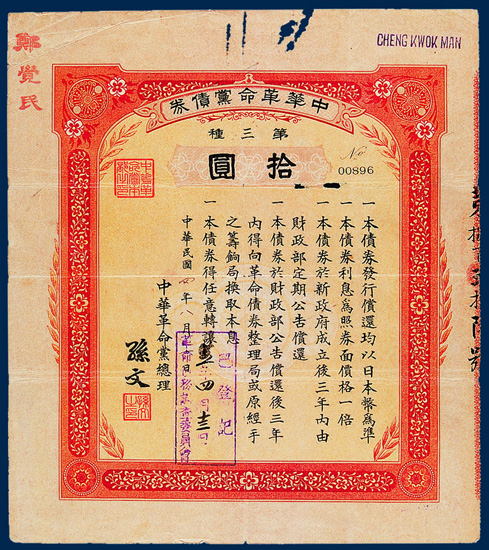 CHENG KWOK MAN
鄭覺民
中華革命黨債券
第三種
拾圓
No 00896
一本債券發行償還均以日本幣爲準
一本債券利息爲照券面價格一倍
一本債券於新政府成立後三年內由
財政部定期公告償還
一本債券於財政部公告償還後三年
內得向革命債券整理局或原經手
之籌餉局換取本息
一本債券得任意轉讓
中華民國四年八月
中華革命黨總理
孫文
已登記